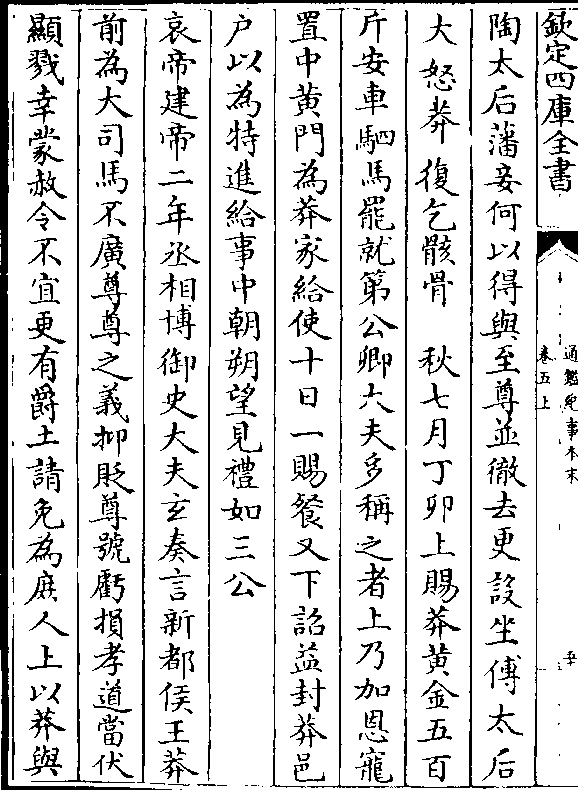 欽定四庫全書
通鑑紀事本末
卷五上
陶太后藩妾何以得與至尊並徹去更設坐傅太后
大怒莽復乞骸骨　秋七月丁卯上賜莽黃金五百
斤安車駟馬罷就第公卿大夫多稱之者上乃加恩寵
置中黃門為莽家給使十日一賜餐又下詔益封莽邑
户以為特進給事中朝朔望見禮如三公
哀帝建帝二年丞相博御史大夫玄奏言新都侯王莽
前為大司馬不廣尊尊之義抑貶尊號虧損孝道當伏
顯戮幸蒙赦令不宜更有爵土請免為庶人上以莽與